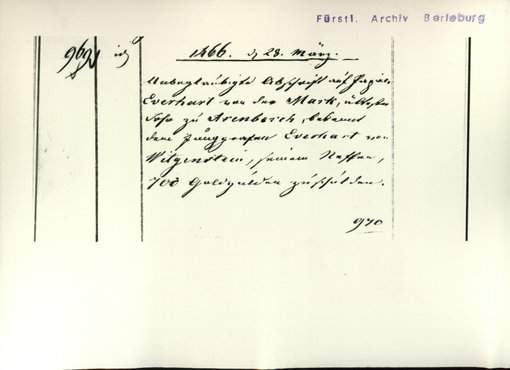 Fürstl. Archiv Berleburg
969
1466. d 28. März.
Unbeglaubigte Abschrift auf Papier
Everhart von der Mark, ältester
Sohn zu Arenberch, bekennt
dem Junggrafen Everhart von
Witgenstein, seinem Neffen,
700 Goldgulden zu schulden.
970